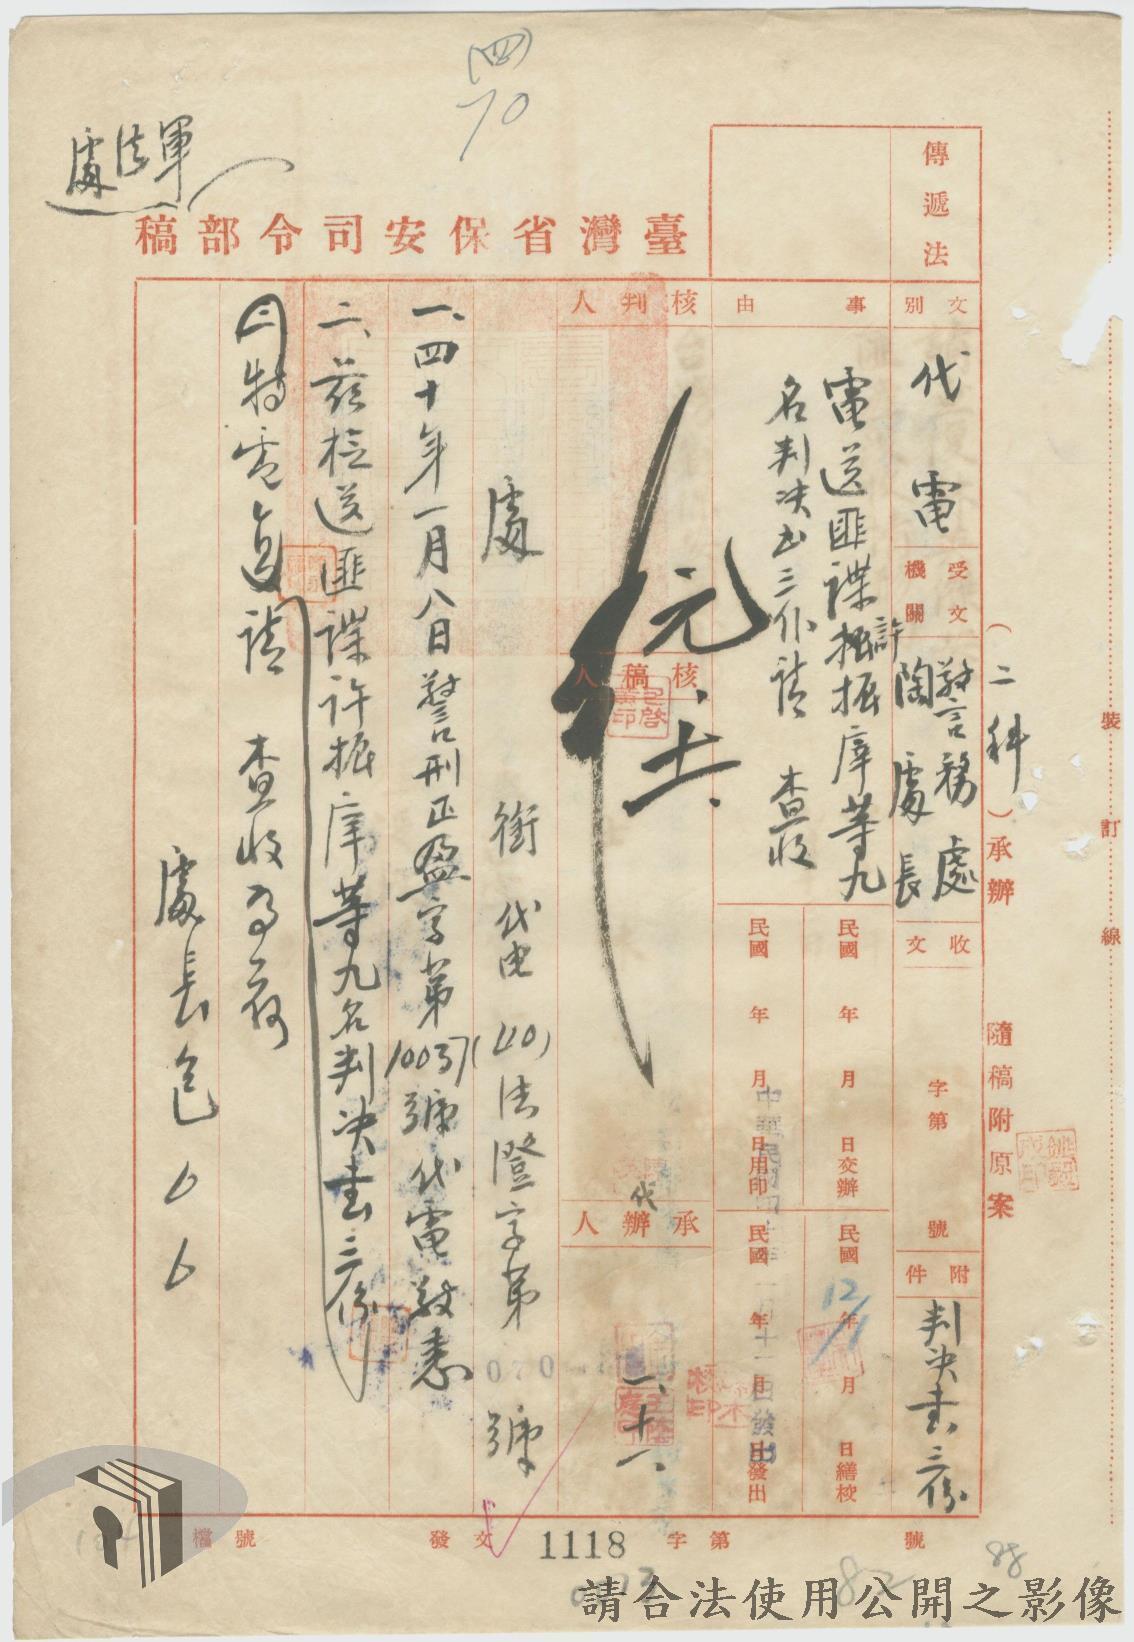 (四)
70
軍法處
臺灣省保安司令部稿
傳遞法
(二科)承辦
隨稿附原案
裝
訂
線
文別
代電
受文機關
警務處
陶處長
收文
字第
號
附件
判決書三份
事由
電送匪諜許振庠等九
名判決書三份請 查收
民國 年 月 日交辦
民國 年 月 日繕校
12/1
民國 年 月 日用印
民國 年 月 日發出
中華民國四十年一月十一日發出
核判人
元、十一、
核稿人
承辦人
代
一、十一、
處 銜代電(40)法澄字第 070 號
一、四十年一月八日警刑正盈字第10037號代電敬悉
二、茲檢送匪諜許振庠等九名判決書三份
三特電復請 查收為荷
處長包〇〇
檔號
發文
1118
字第
號
88
82
請合法使用公開之影像